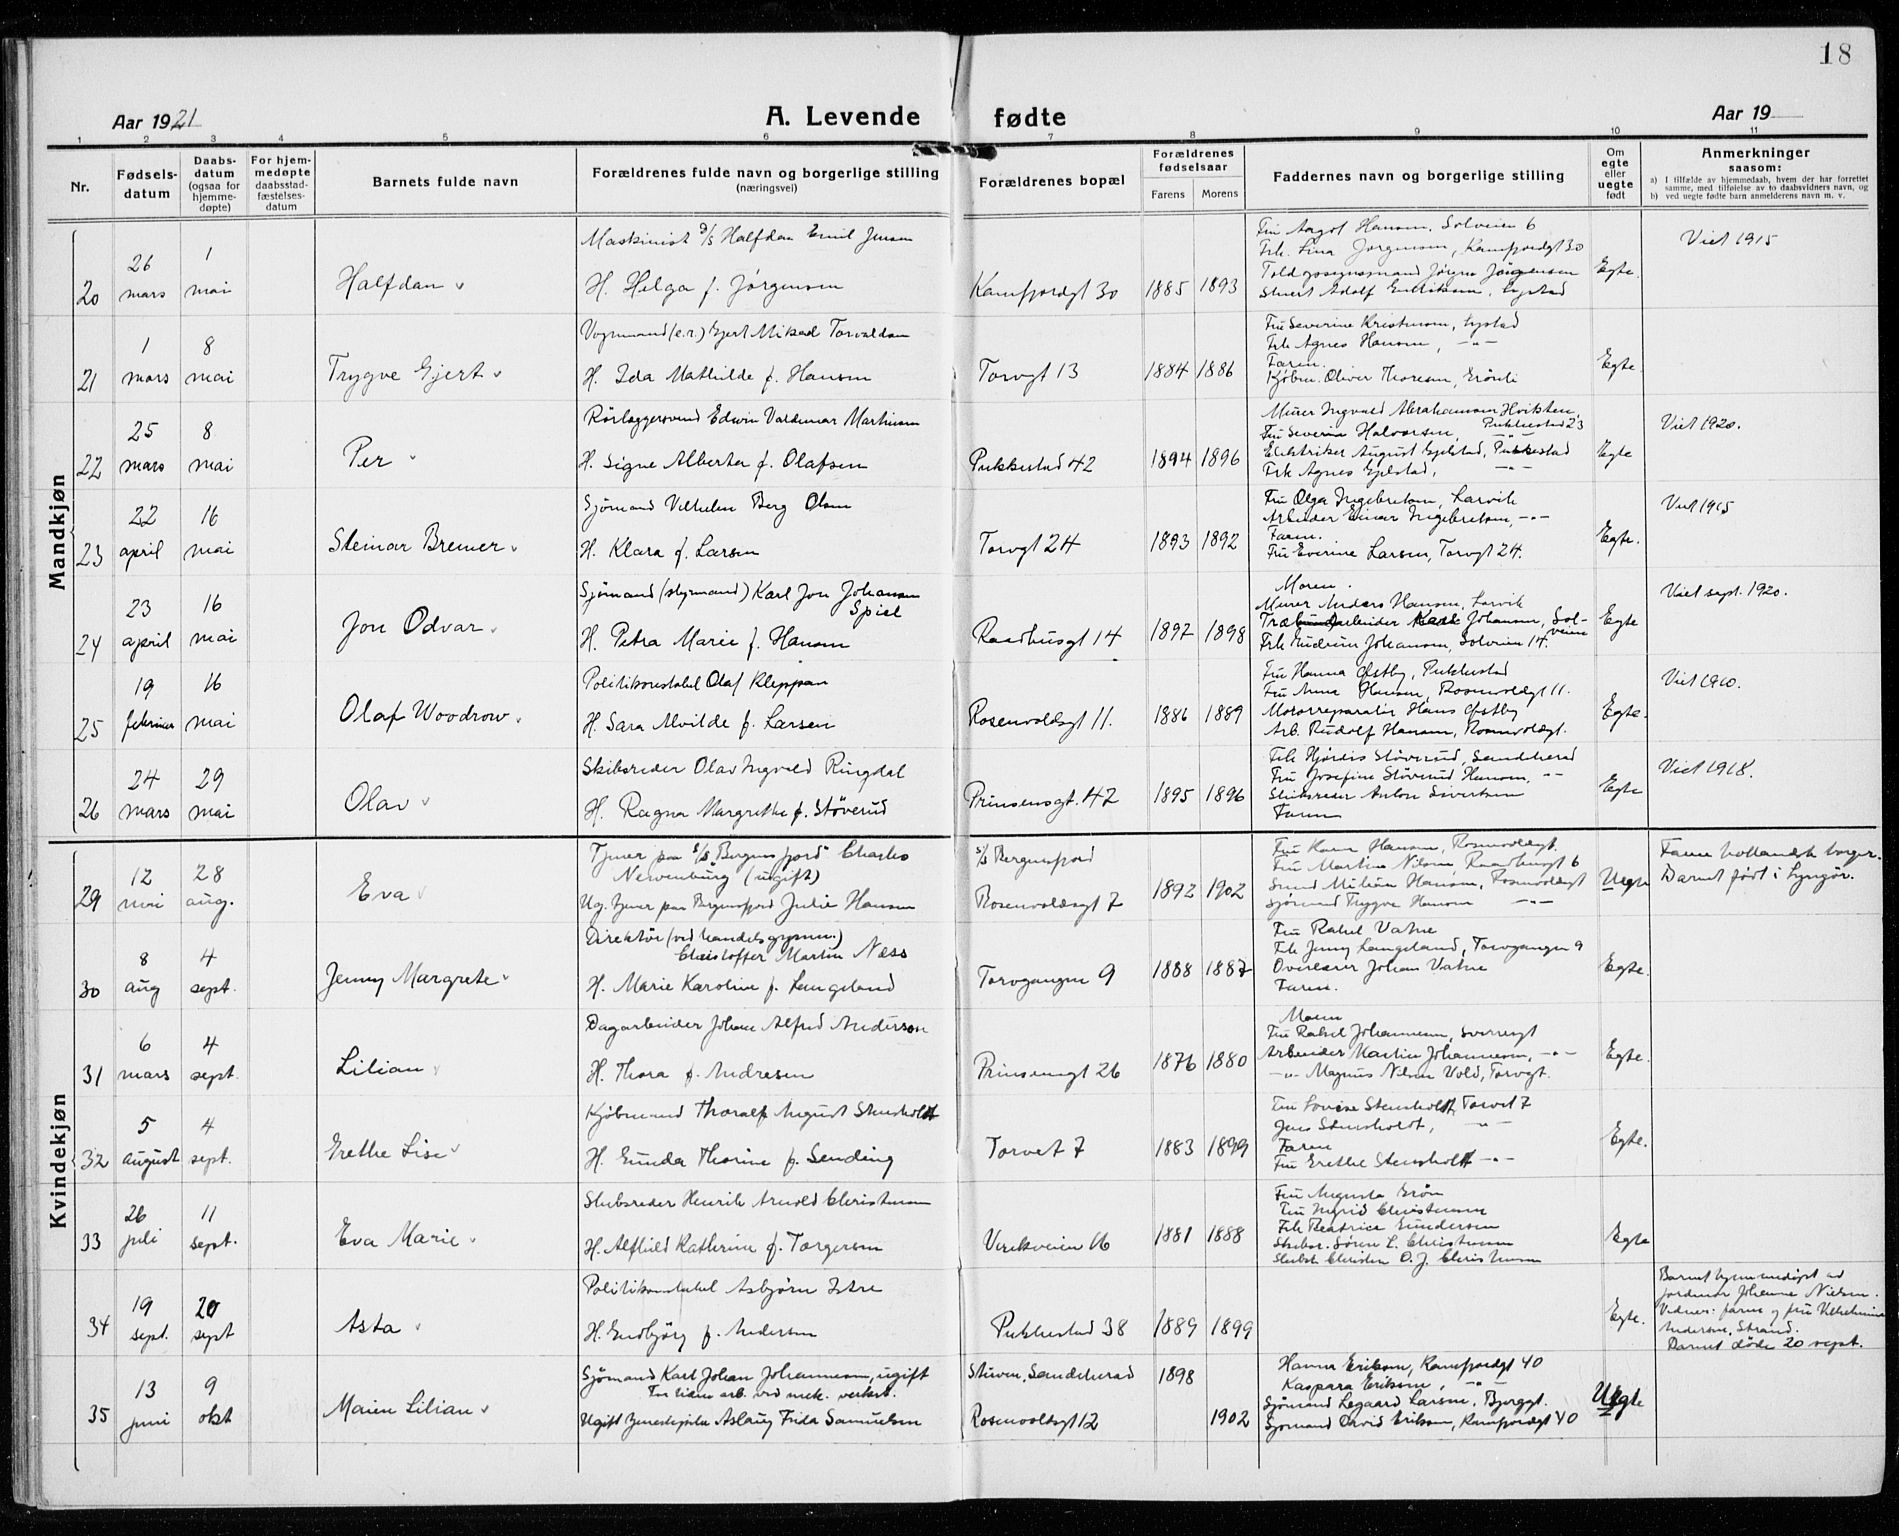 18
Aar 1921
A. Levende fødte
Aar 19
1 2 3 4 5 6 7 8 9 10 11
Nr.
Fødsels-
datum
Daabs-
datum
(ogsaa for
hjemme-
døpte)
For hjem-
medøpte
daabsstad-
fæstelses-
datum
Barnets fulde navn
Forældrenes fulde navn og borgerlige stilling
(næringsvei)
Forældrenes bopæl
Forældrenes
fødselsaar
Farens Morens
Faddernes navn og borgerlige stilling
Om
egte
eller
uegte
født
Anmerkninger
saasom:
a) I tilfælde av hjemmedaab, hvem der har forrettet
samme, med tilføielse av to daabsvidners navn, og
b) ved uegte fødte barn anmelderens navn m. v.
Mandkjøn
20
26 mars
1 mai
Halfdan
Maskinist D/S Halfdan Emil Jensen
H. Helga f. Jørgensen
Kamfjordgt 30
1885 1893
Fru Aagot Hansen, Solveien 6
Frk. Lina Jørgensen, Kamfjordgt 30
Toldopsynsmand Jørgen Jørgensen
Stuert Adolf Eriksen, Lystad
Egte.
Viet 1915
21
1 mars
8 mai
Trygve Gjert
Vognmand (e.r.) Gjert Mikael Torvaldsen
H. Ida Mathilde f. Hansen
Torvgt 13
1884 1886
Fru Severine Kristensen, Lystad
Frk Agnes Hansen, -"-
Faren.
Kjøbm. Oliver Thoresen, Grønli
Egte.
22
25 mars
8 mai
Per
Rørlæggersvend Edwin Valdemar Martinsen
H. Signe Alberta f. Olafsen
Pukkestad 42
1894 1896
Murer Ingvald Abrahamsen Hvidsten,
Pukkestad 23
Fru Severine Halvorsen, -"-
Elektriker August Gjelstad, Pukkestad
Frk Agnes Gjelstad, -"-
Egte
Viet 1920.
23
22 april
16 mai
Steinar Bremer
Sjømand Vilhelm Berg Olsen
H. Klara f. Larsen
Torvgt 24
1893 1892
Fru Olga Ingebretsen, Larvik
Arbeider Einar Ingebretsen, -"-
Faren.
Fru Everine Larsen, Torvgt 24.
Egte.
Viet 1915
24
23 april
16 mai
Jon Odvar
Sjømand (styrmand) Karl Jon Johansen
Spiel
H. Petra Marie f. Hansen
Raadhusgt 14
1897 1898
Moren.
Murer Anders Hansen, Larvik
Johansen, Sol-
veien
Frk Gudrun Johansen, Solveien 14.
Egte
Viet sept. 1920.
25
19 februar
16 mai
Olaf Woodrow
Politikonstabel Olaf Kleppan
H. Sara Alvilde f. Larsen
Rosenvoldsgt 11.
1886 1889
Fru Hanna Østby, Pukkestad
Fru Anna Hansen, Rosenvoldsgt 11.
Motorreparatør Hans Østby
Arb. Rudolf Hansen, Rosenvoldsgt.
Egte.
Viet 1910.
26
24 mars
29 mai
Olav
Skibsreder Olav Ingvald Ringdal
H. Ragna Margrethe f. Støverud
Prinsensgt. 42
1895 1896
Frk Hjørdis Støverud, Sandeherad
Fru Josefine Støverud Hansen, -"-
Skibsreder Anton Sivertsen
Faren
Egte
Viet 1918.
Kvindekjøn
29
12 mai
28 aug.
Eva
Tjener paa S/S "Bergensfjord" Charles
(ugift)
Ug. tjener paa Bergensfjord Julie Hansen
S/S Bergensfjord
Rosenvoldsgt 7
1892 1902
Fru Hansen, Rosenvoldsgt.
Fru Martine Nilsen, Raadhusgt 6
Hansen, Rosenvoldsgt
Sjømand Trygve Hansen -"-
Uegte
Faren hollandsk borger.
Barnet født i Lyngør.
30
8 aug
4 sept.
Jenny Margrete
Direktør (ved handelsgymn.)
Christoffer Martin Næss
H. Marie Karoline f. Langeland
Torvgangen 9
1888 1887
Fru Rakel Vatne
Frk Jenny Langeland, Torvgangen 9
Overlærer Johan Vatne
Faren.
Egte.
31
6 mars
4 sept
Lilian
Dagarbeider Johan Alfred Anderson
H. Thora f. Andresen
Prinsensgt 26
1876 1880
Moren
Fru Rakel Johannesen, Sverresgt
Arbeider Martin Johannesen, -"-
-"- Magnus Nilsen Vold, Torvgt.
Egte.
32
5 august
4 sept.
Grethe Lise
Kjøbmand Thoralf August Stensholdt
H. Gunda Thorine f. Sending
Torvet 7
1883 1899
Fru Lovise Stensholdt, Torvet 7
Jens Stensholdt, -"-
Faren
Fru Grethe Stensholdt -"-
Egte.
33
26 juli
11 sept.
Eva Marie
Skibsreder Henrik Arnold Christensen
H. Alfhild Kathrine f. Torgersen
Vinkveien 16
1881 1888
Fru Augusta Grøn
Fru Ingrid Christensen
Frk Beatrice Gundersen
Skibsr. Søren L. Christensen
Skibsr. Christen O. J. Christensen
Egte
34
19 sept.
20 sept
Asta
Politikonstabel Asbjørn Istre
H. Gudbjørg f. Andersen
Pukkestad 38
1889 1899
Egte.
Barnet hjemmedøpt av
jordmor Johanne Nielsen.
Vidner: faren og fru Vilhelmine
Andersen, Strand.
Barnet døde 20 sept.
35
13 juni
9 okt
Maien Lilian
Sjømand Karl Johan Johannesen, ugift
For tiden arb. ved mek. verkst.
Ugift tjenestepike Aslaug Frida Samuelsen
Stuven, Sandeherad
Rosenvoldsgt 12
1898 1902
Hanna Eriksen, Kamfjordgt 40
Kaspara Eriksen, -"-
Sjømand Legaard Larsen, Bjerggt.
Sjømand David Eriksen, Kamfjordgt 40
Uegte